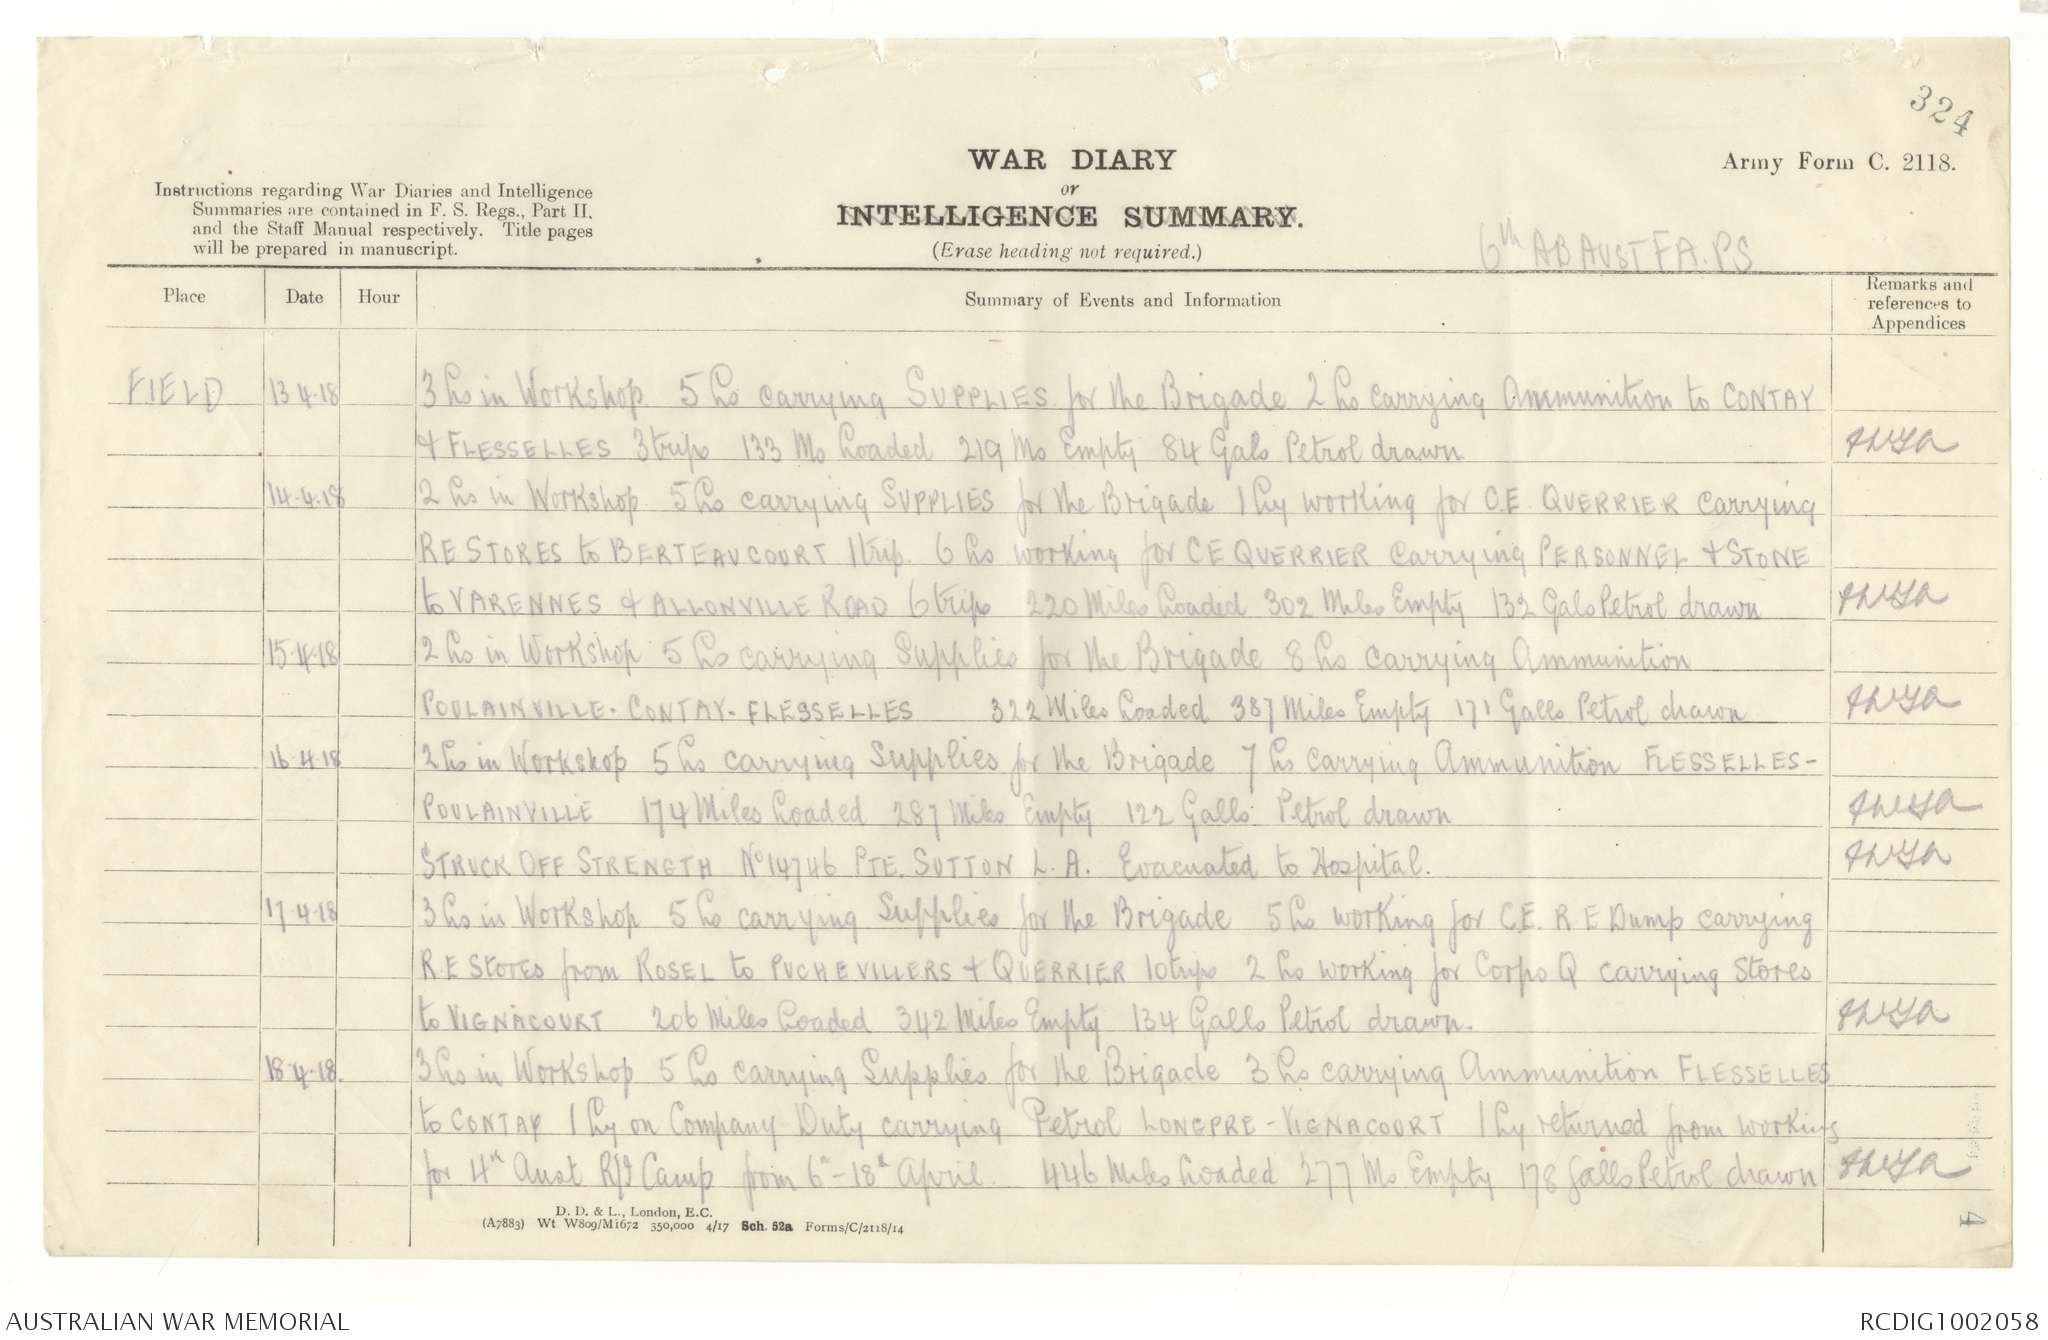 324
WAR DIARY
or
INTELLIGENCE SUMMARY.
(Erase heading not required.)
Army Form C. 2118.
Instructions regarding War Diaries and Intelligence
Summaries are contained in F. S. Regs., Part II.
and the Staff Manual respectively. Title pages
will be prepared in manuscript.
6th AB AUST F A. PS
Place
Date
Hour
Summary of Events and Information
Remarks and
references to
Appendices
FIELD 13.4.18 3 Ls in Workshop. 5 Ls carrying SUPPLIES for the Brigade 2 Ls carrying Ammunition to CONTAY
& FLESSELLES 3 trips 133 Ms Loaded 219 Ms Empty 84 Gals Petrol drawn
14.4.18 2 Ls in Workshop. 5 Ls carrying SUPPLIES for the Brigade 1 Ly working for C.E. QUERRIER carrying
RE STORES to BERTEAUCOURT 1 trip. 6 Ls working for CE QUERRIER carrying PERSONNEL & STONE
to VARENNES & ALLONVILLE ROAD 6 trips 220 Miles Loaded 302 Miles Empty 132 Gals Petrol drawn
15.4.18 2 Ls in Workshop 5 Ls carrying Supplies for the Brigade 8 Ls carrying Ammunition
POULAINVILLE - CONTAY - FLESSELLES 322 Miles Loaded 387 Miles Empty 171 Galls Petrol drawn
16.4.18 2 Ls in Workshop 5 Ls carrying Supplies for the Brigade 7 Ls carrying Ammunition FLESSELLES -
POULAINVILLE 174 Miles Loaded 287 Miles Empty 122 Galls Petrol drawn
STRUCK OFF STRENGTH No 14746 PTE. SUTTON L. A. Evacuated to Hospital.
17.4.18 3 Ls in Workshop 5 Ls carrying Supplies for the Brigade 5 Ls working for C.E. R E Dump carrying
R.E Stores from ROSEL to PUCHEVILLERS & QUERRIER 10 trips 2 Ls working for Corps Q carrying Stores
to VIGNACOURT 206 Miles Loaded 342 Miles Empty 134 Galls Petrol drawn.
18.4.18. 3 Ls in Workshop 5 Ls carrying Supplies for the Brigade 3 Ls carrying Ammunition FLESSELLES
to CONTAY 1 Ly on Company Duty carrying Petrol LONGPRE - VIGNACOURT 1 Ly returned from working
for 4th Aust R/f Camp from 6th - 18th April. 446 Miles Loaded 277 Ms Empty 178 Galls Petrol drawn
D. D. & L., London, E.C.
(A7883) Wt. W809/M1672 350,000 4/17 Sch. 52a Forms/C/2118/14
4
AUSTRALIAN WAR MEMORIAL
RCDIG1002058